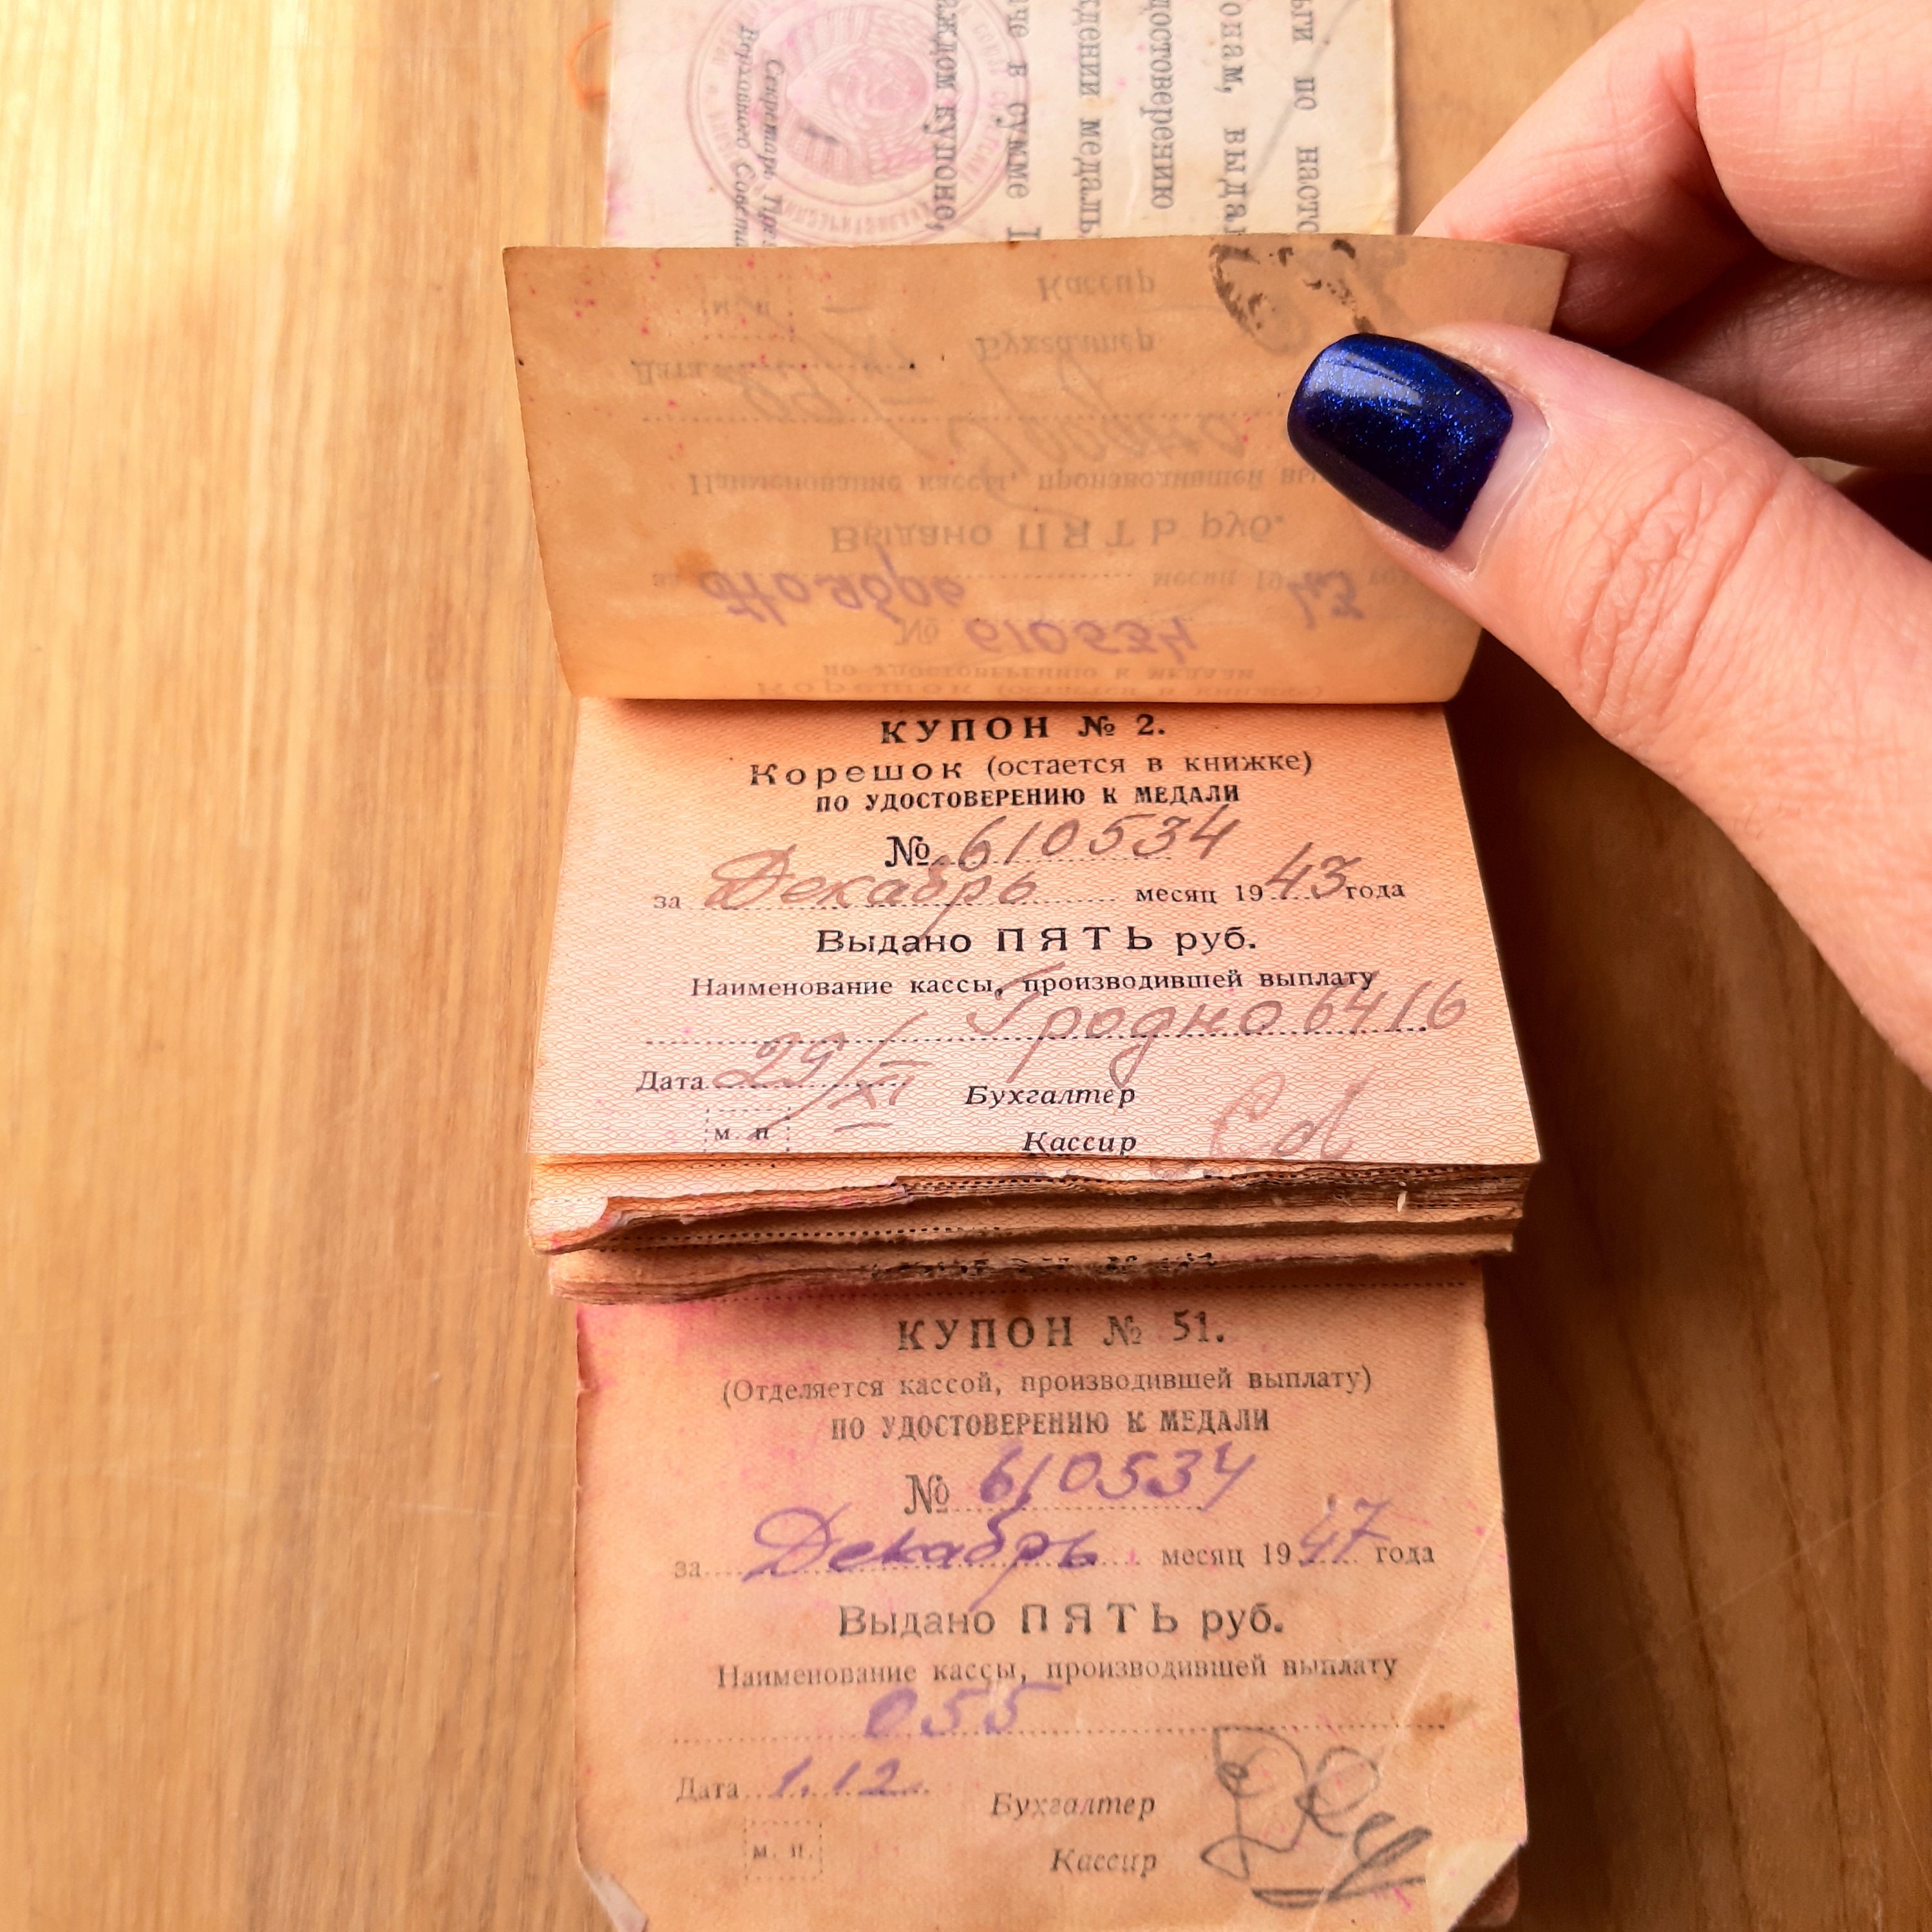 ьги по насто
онам, выдан
достоверению
ждении медаль
че в сумме
аждом купоне,
Секретарь През
Верховного Совета
Корешок (остается в книжке)
по удостоверению к медали
№ 610534
за Ноябрь месяц 1943 года
Выдано ПЯТЬ руб.
Наименование кассы, производившей вы
Гродно
Дата
Бухгалтер
м. п.
Кассир
КУПОН № 2.
Корешок (остается в книжке)
ПО УДОСТОВЕРЕНИЮ К МЕДАЛИ
№ 610534
за Декабрь месяц 1943 года
Выдано ПЯТЬ руб.
Наименование кассы, производившей выплату
Гродно 6416
Дата 29/XI
Бухгалтер
м. п.
Кассир
КУПОН № 51.
(Отделяется кассой, производившей выплату)
ПО УДОСТОВЕРЕНИЮ К МЕДАЛИ
№ 610534
за Декабрь месяц 1947 года
Выдано ПЯТЬ руб.
Наименование кассы, производившей выплату
055
Дата 1.12.
Бухгалтер
м. п.
Кассир